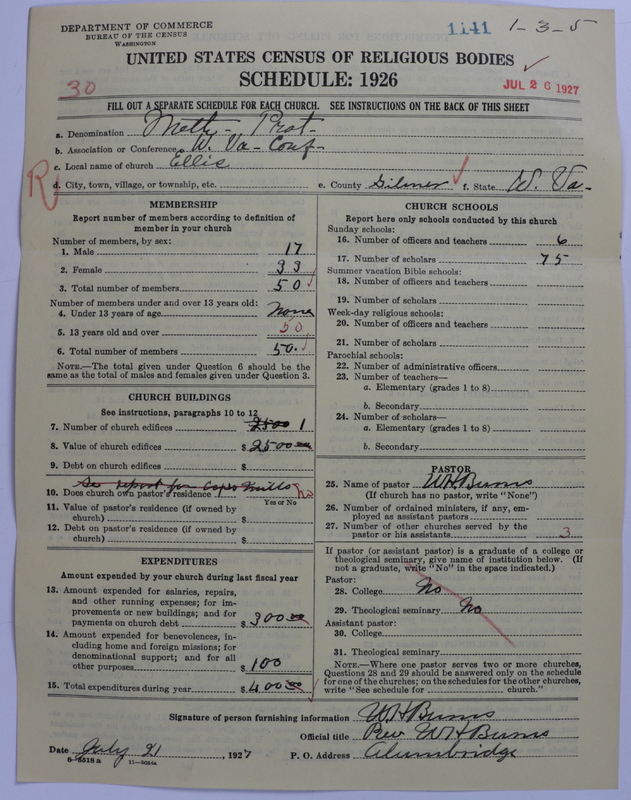 DEPARTMENT OF COMMERCE
BUREAU OF THE CENSUS
WASHINGTON
1141 1-3-5
UNITED STATES CENSUS OF RELIGIOUS BODIES
SCHEDULE: 1926
30
JUL 26 1927
FILL OUT A SEPARATE SCHEDULE FOR EACH CHURCH. SEE INSTRUCTIONS ON THE BACK OF THIS SHEET
a. Denomination Meth- Prot-
b. Association or Conference W. Va- Conf-
c. Local name of church Ellis
R
d. City, town, village, or township, etc. e. County Gilmer f. State W. Va-
MEMBERSHIP
Report number of members according to definition of
member in your church
Number of members, by sex:
1. Male 17
2. Female 33
3. Total number of members 50
Number of members under and over 13 years old:
4. Under 13 years of age None
5. 13 years old and over 50
6. Total number of members 50.
NOTE.—The total given under Question 6 should be the
same as the total of males and females given under Question 3.
CHURCH BUILDINGS
See instructions, paragraphs 10 to 12
7. Number of church edifices 2500 1
8. Value of church edifices $ 2500 00
9. Debt on church edifices $
So report for Mills
10. Does church own pastor's residence No
Yes or No
11. Value of pastor's residence (if owned by
church) $
12. Debt on pastor's residence (if owned by
church) $
EXPENDITURES
Amount expended by your church during last fiscal year
13. Amount expended for salaries, repairs,
and other running expenses; for im-
provements or new buildings; and for
payments on church debt $ 300 00
14. Amount expended for benevolences, in-
cluding home and foreign missions; for
denominational support; and for all
other purposes $ 100
15. Total expenditures during year $ 400 00
CHURCH SCHOOLS
Report here only schools conducted by this church
Sunday schools:
16. Number of officers and teachers 6
17. Number of scholars 75
Summer vacation Bible schools:
18. Number of officers and teachers
19. Number of scholars
Week-day religious schools:
20. Number of officers and teachers
21. Number of scholars
Parochial schools:
22. Number of administrative officers
23. Number of teachers—
a. Elementary (grades 1 to 8)
b. Secondary
24. Number of scholars—
a. Elementary (grades 1 to 8)
b. Secondary
PASTOR
25. Name of pastor W H Burns
(If church has no pastor, write "None")
26. Number of ordained ministers, if any, em-
ployed as assistant pastors
27. Number of other churches served by the
pastor or his assistants 3
If pastor (or assistant pastor) is a graduate of a college or
theological seminary, give name of institution below. (If
not a graduate, write "No" in the space indicated.)
Pastor:
28. College No
29. Theological seminary No
Assistant pastor:
30. College
31. Theological seminary
NOTE.—Where one pastor serves two or more churches,
Questions 28 and 29 should be answered only on the schedule
for one of the churches; on the schedules for the other churches,
write "See schedule for church."
Signature of person furnishing information W H Burns
Official title Rev W H Burns
Date July 21, 1927 P. O. Address Alumbridge
8-5518 a 11-9034a